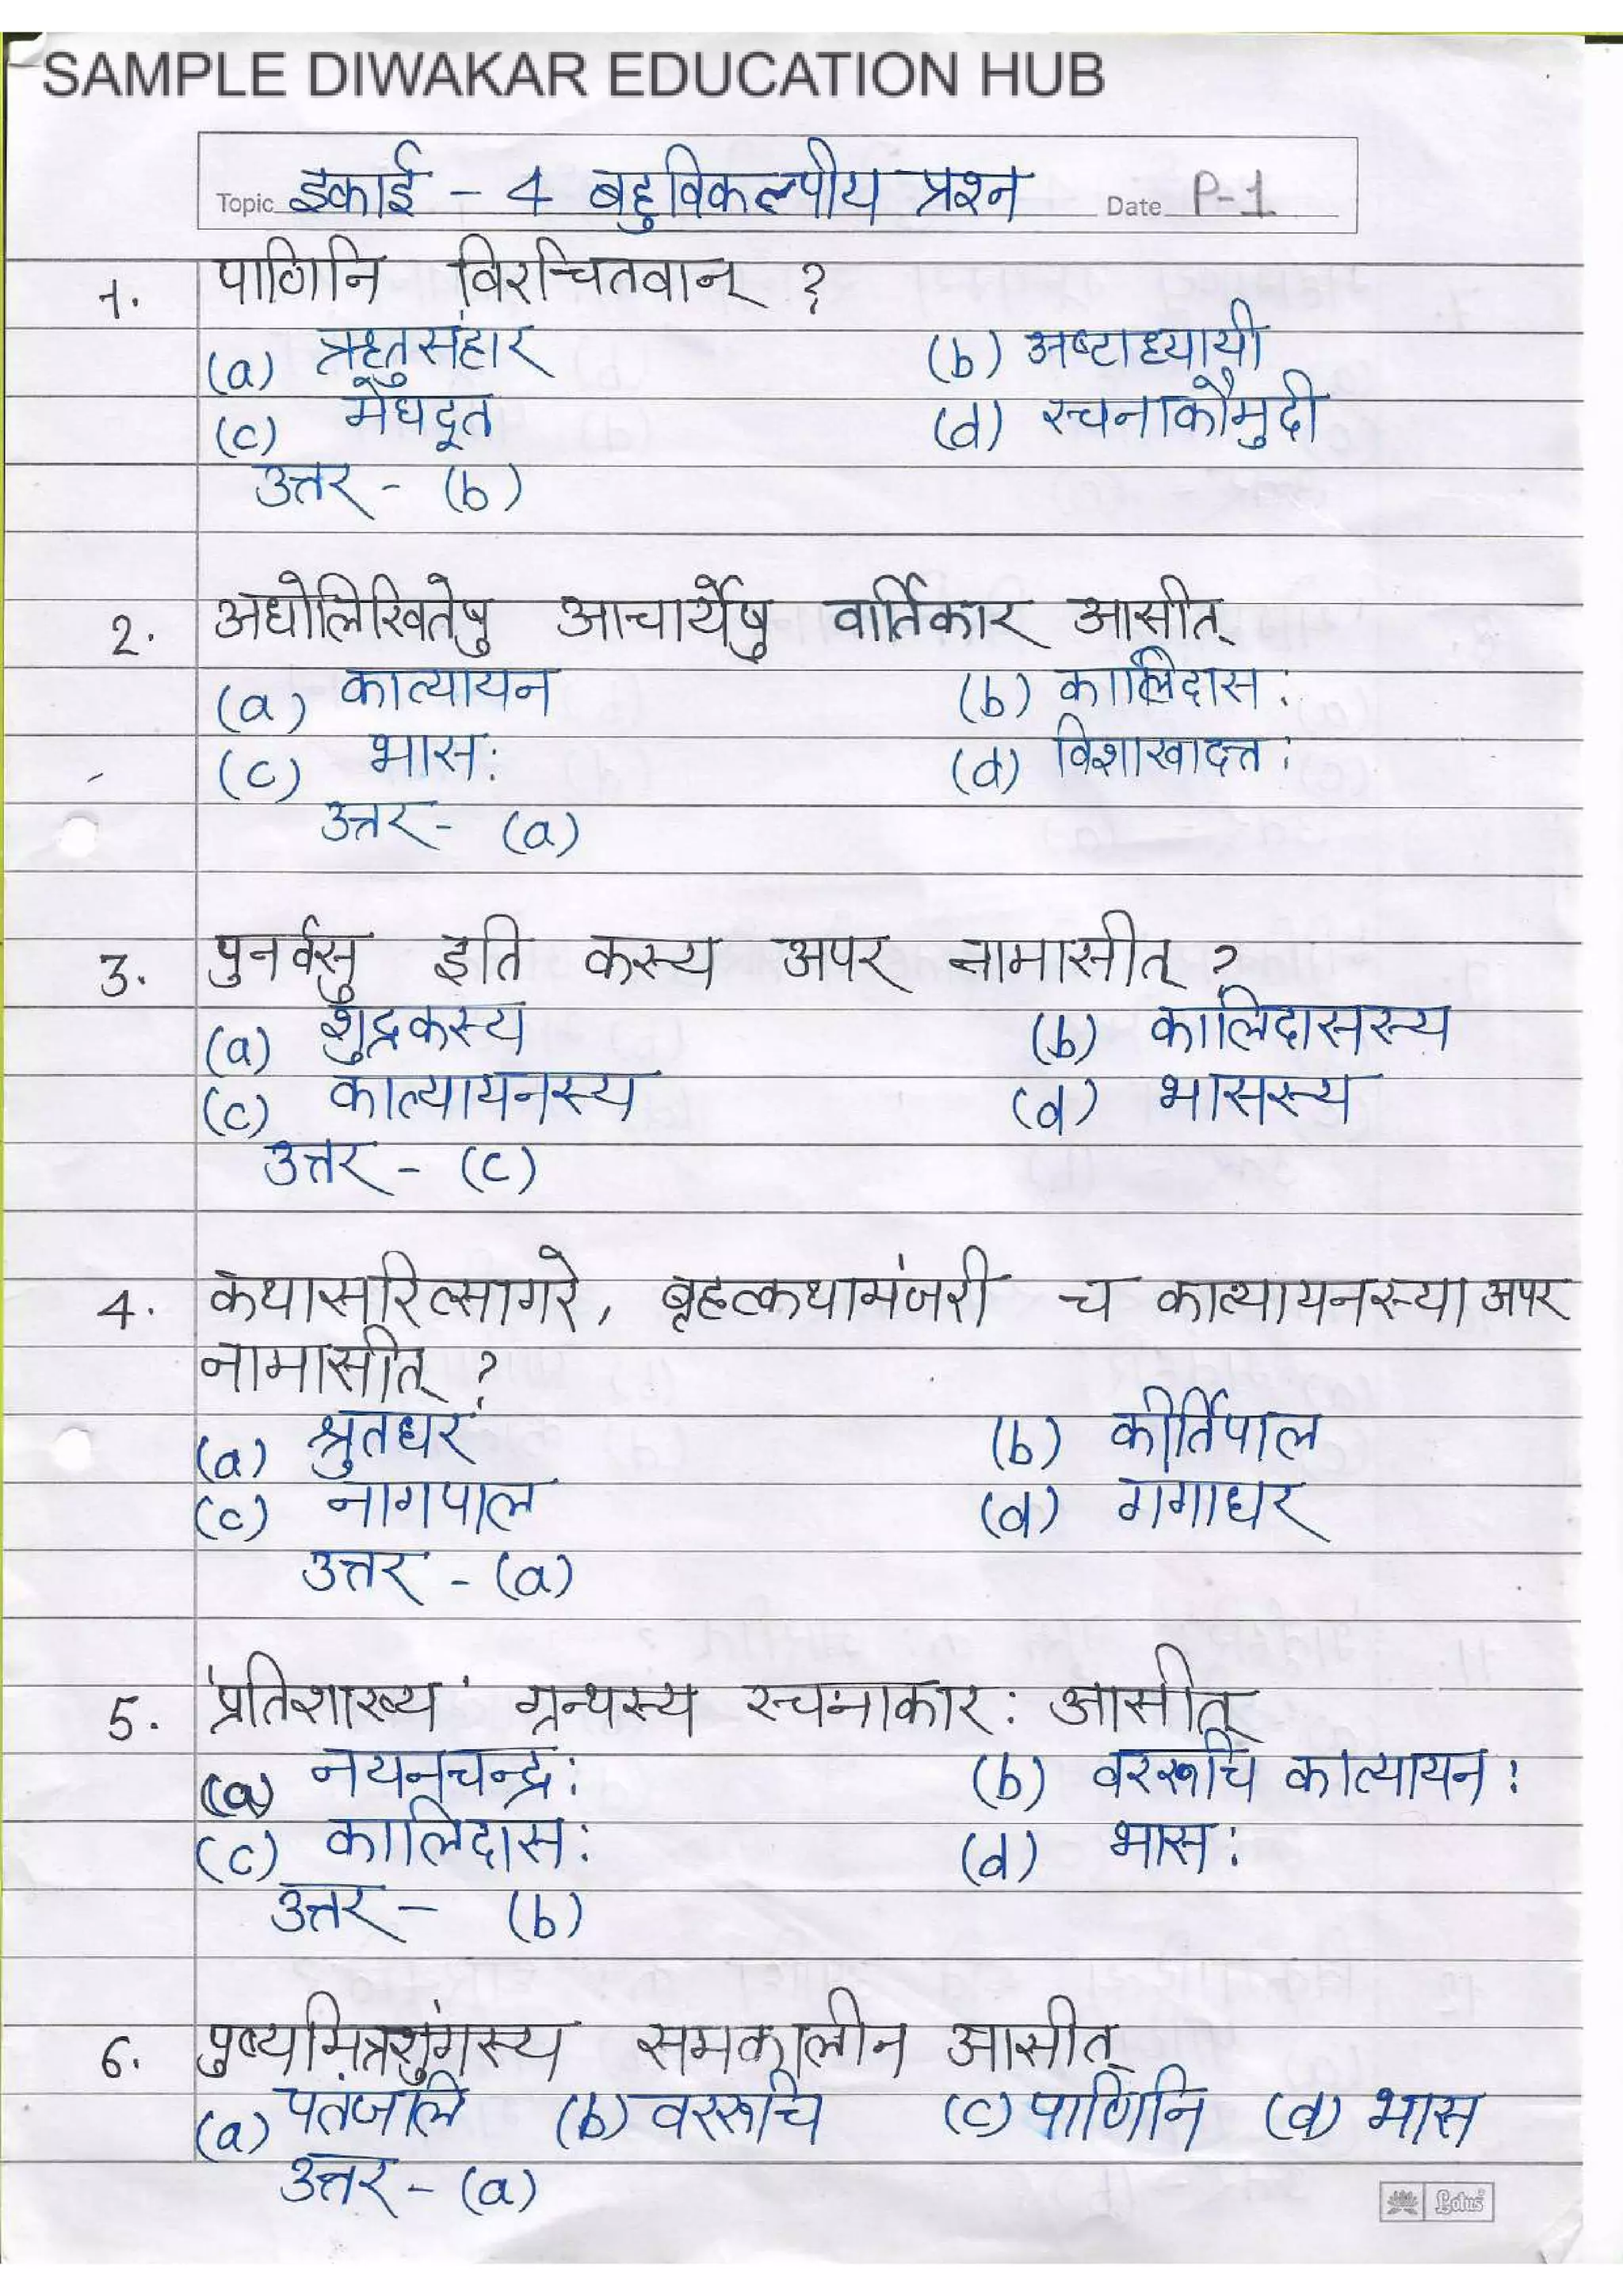 SAMPLE DIWAKAR EDUCATION HUB
Topic इकाई - 4 बहुविकल्पीय प्रश्न Date P-1
1. पाणिनि विरचितवान् ?
(a) ऋतुसंहार (b) अष्टाध्यायी
(c) मेघदूत (d) रचनाकौमुदी
उत्तर - (b)
2. अधोलिखितेषु आचार्येषु वार्तिकार आसीत्
(a) कात्यायन (b) कालिदास:
(c) भास: (d) विशाखादत्त:
उत्तर- (a)
3. पुनर्वसु इति कस्य अपर नामासीत् ?
(a) शुद्रकस्य (b) कालिदासस्य
(c) कात्यायनस्य (d) भासस्य
उत्तर - (c)
4. कथासरित्सागरे, बृहत्कथामंजरी च कात्यायनस्या अपर
नामासीत् ?
(a) श्रुतधर (b) कीर्तिपाल
(c) नागपाल (d) गगाधर
उत्तर - (a)
5. 'प्रतिशाख्य' ग्रन्थस्य रचनाकार: आसीत्
(a) नयनचन्द्र: (b) वररूचि कात्यायन:
(c) कालिदास: (d) भास:
उत्तर - (b)
6. पुष्यमित्रशुंगस्य समकालीन आसीत्
(a) पतंजलि (b) वररूचि (c) पाणिनि (d) भास
उत्तर - (a)
Lotus